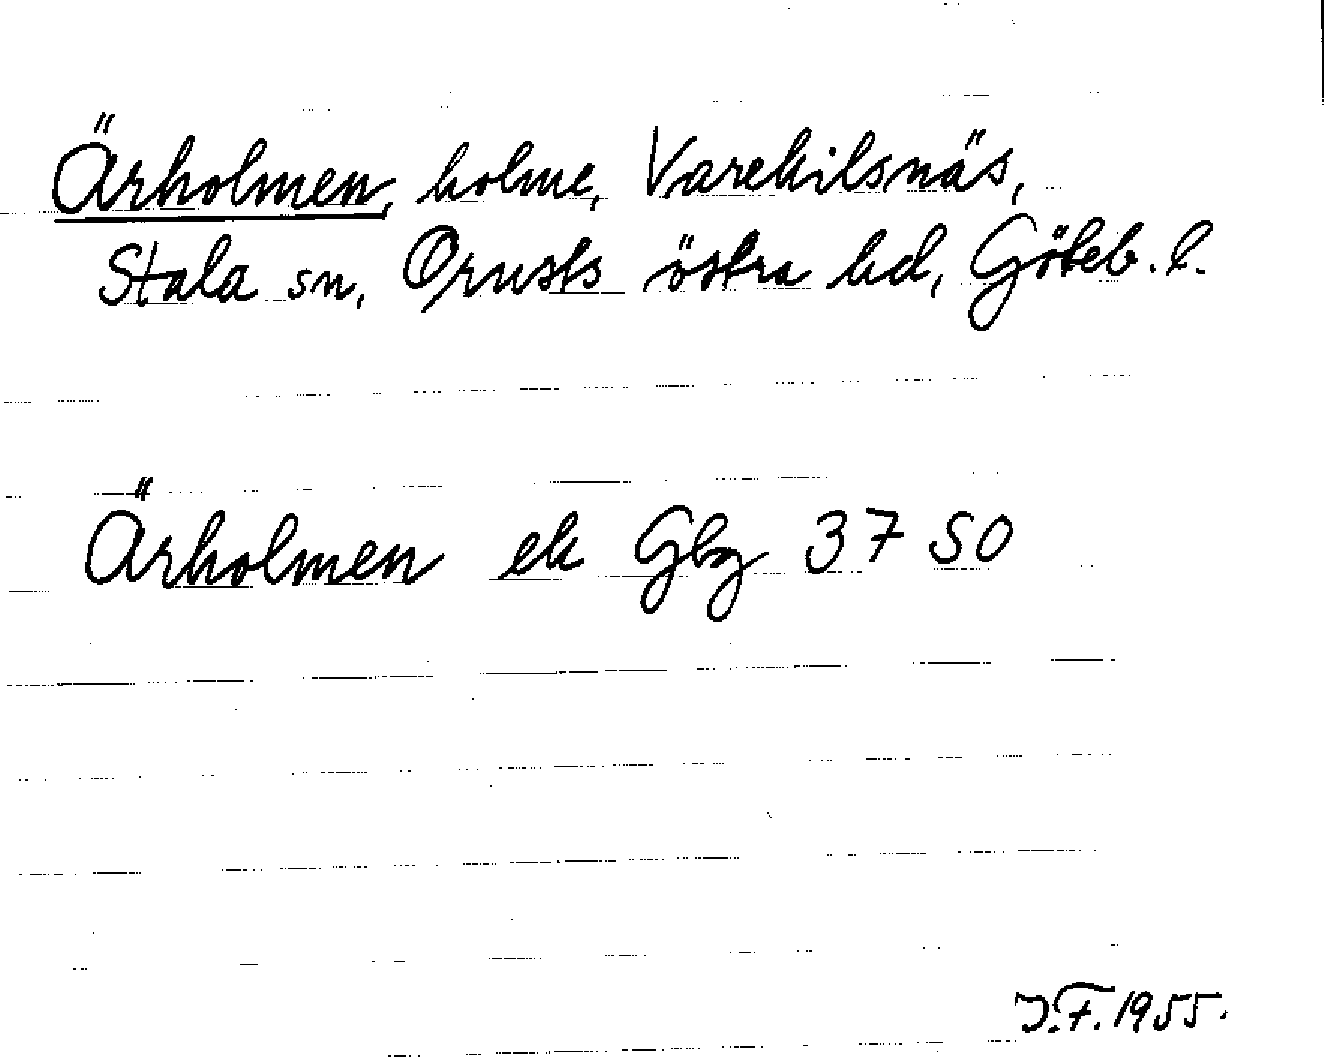 Ärholmen, holme, Varekilsnäs,
Stala sn, Orusts östra hd, Göteb. l.
Ärholmen ek Gbg 37 50
J.F. 1955.